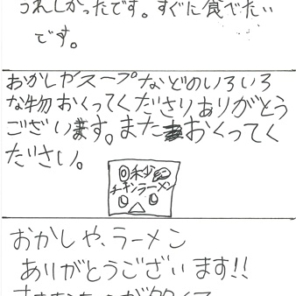 うれしかったです。すぐに食べたい
です。
おかしやスープなどのいろいろ
な物おくってくださりありがとう
ございます。またおくってく
ださい。
チキンラーメン
おかしや、ラーメン
ありがとうございます!!